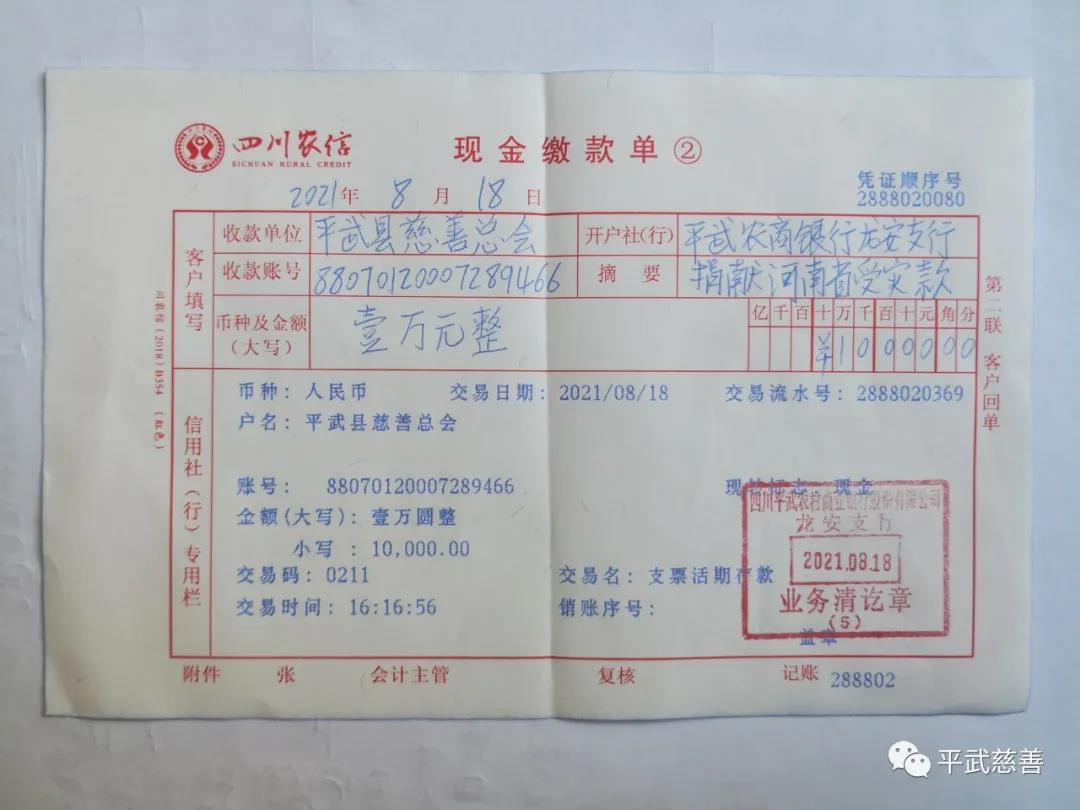 四川农信
SICHUAN RURAL CREDIT
现金缴款单②
2021年 8 月 18 日
凭证顺序号
2888020080
客户填写
收款单位 平武县慈善总会 开户社(行) 平武农商银行龙安支行
收款账号 88070120007289466 摘要 捐献河南省受灾款
币种及金额(大写) 壹万元整
亿千百十万千百十元角分
¥1000000
第二联 客户回单
信用社(行)专用栏
币种: 人民币 交易日期: 2021/08/18 交易流水号: 2888020369
户名: 平武县慈善总会
账号: 88070120007289466 现转标志 现金
金额(大写): 壹万圆整
小写 : 10,000.00
交易码: 0211 交易名: 支票活期存款
交易时间: 16:16:56 销账序号:
盖章
四川平武农村商业银行股份有限公司
龙安支行
2021.08.18
业务清讫章
(5)
附件 张 会计主管 复核 记账 288802
(2018)B354 (红色)
平武慈善